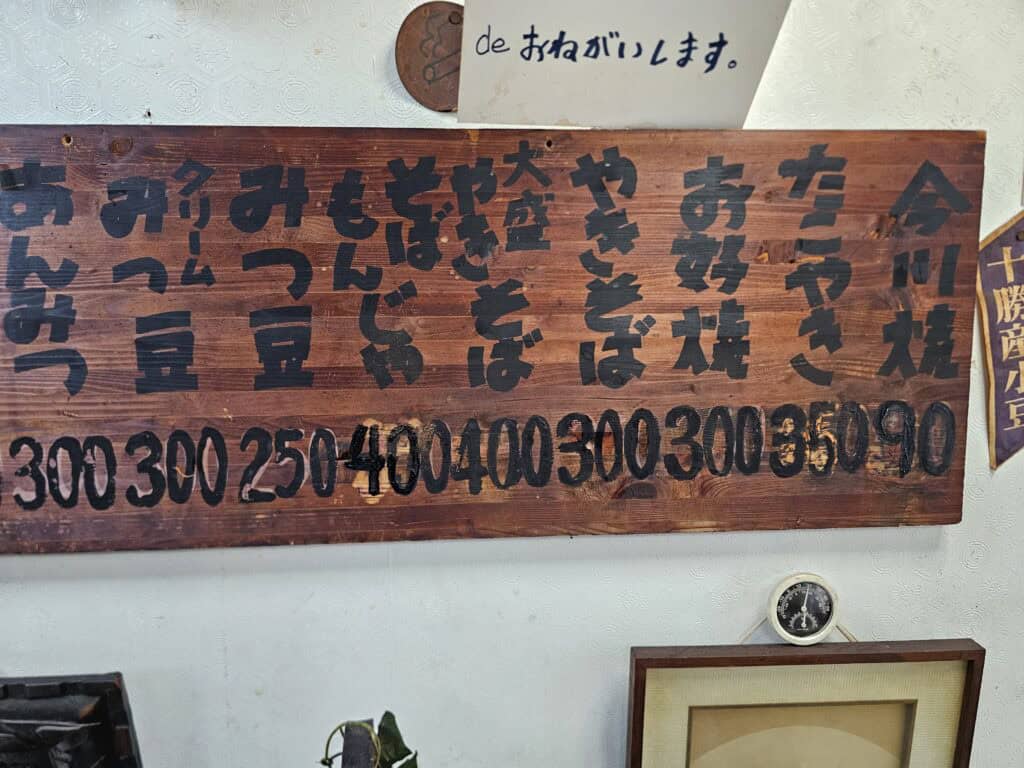 de おねがいします。
今川焼
90
たこやき
350
お好焼
300
やきそば
300
大盛
やきそば
400
そば
もんじゃ
400
みつ豆
250
クリーム
みつ豆
300
あんみつ
300
十勝産小豆